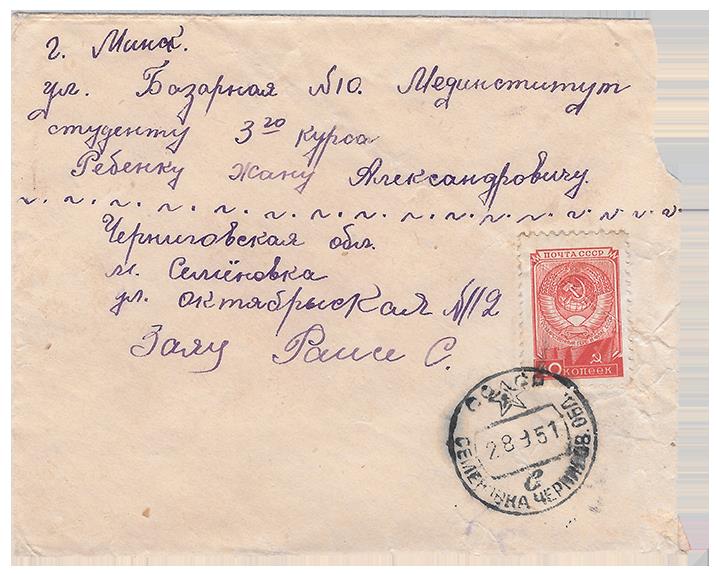 г. Минск.
ул. Базарная №10. Мединститут
студенту 3го курса
Ребенку Жану Александровичу.
Черниговская обл.
м. Семёновка
ул. октябрьская №112
Заяц Раисе С.
ПОЧТА СССР
КОПЕЕК
СССР
28 9 51
СЕМЕНОВКА ЧЕРНИГОВ. ОБЛ.
с